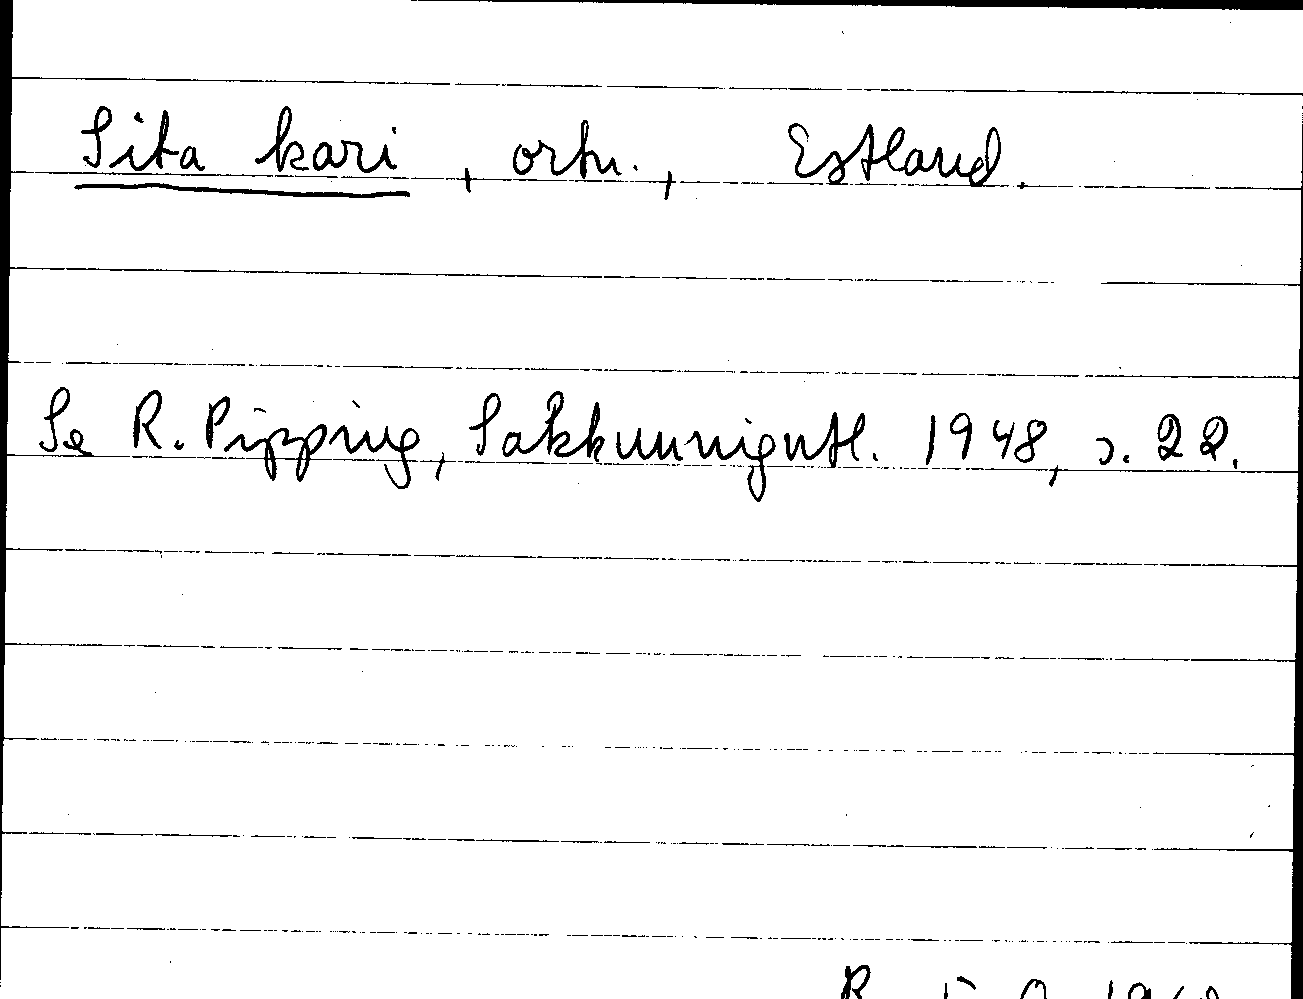 Sita kari, ortn., Estland.
Se R. Pipping, Sakkunnigutl. 1948, s. 22.